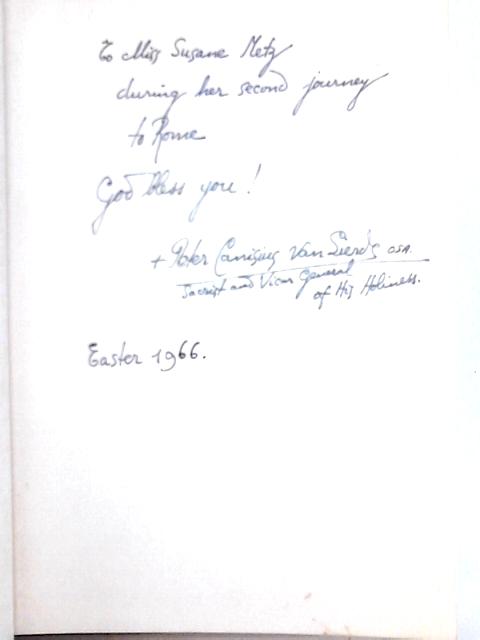 To Miss Susane Metz
during her second journey
to Rome
God bless you!
+ Peter Canisius Van Lierde OSA.
Sacrist and Vicar General
of His Holiness.
Easter 1966.